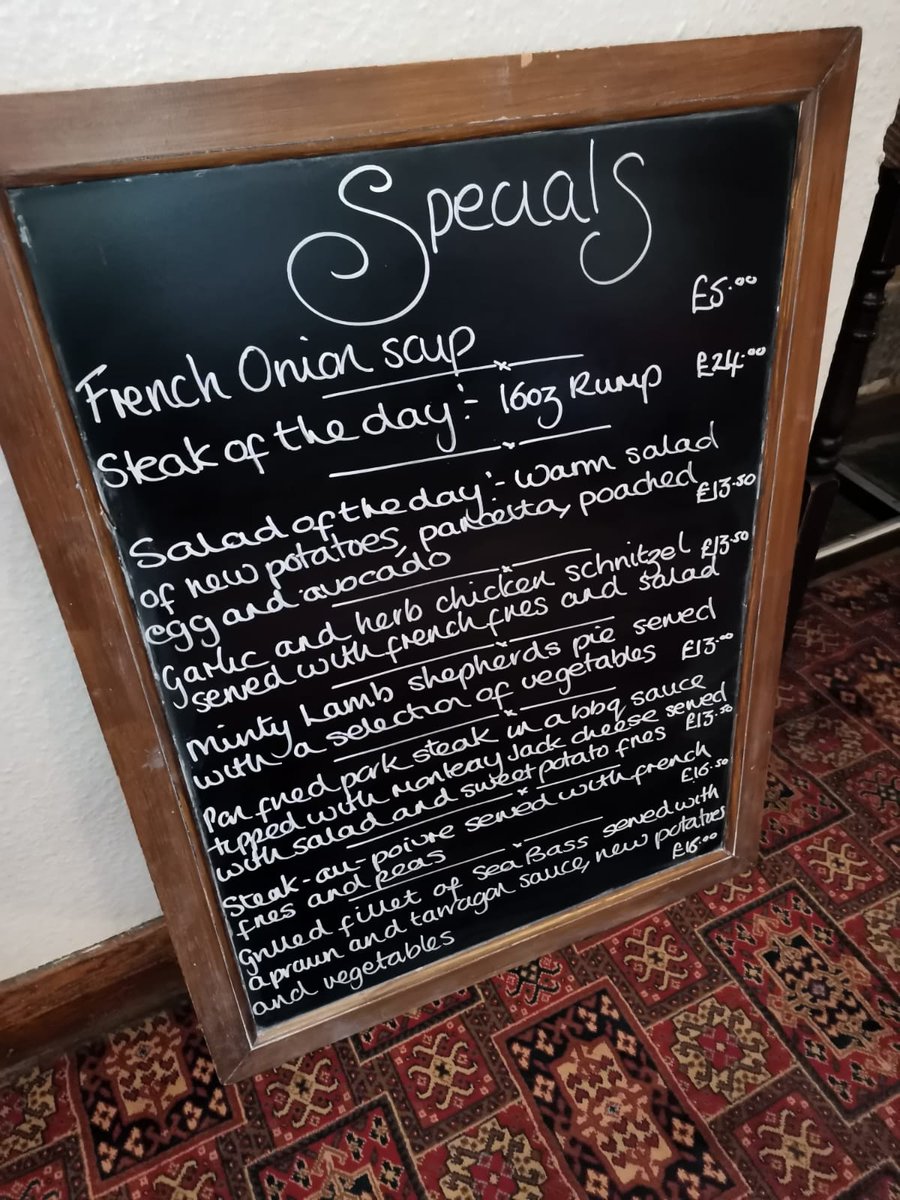 Specials
French Onion soup £5.00
Steak of the day:- 16oz Rump £24.00
Salad of the day:- warm salad
of new potatoes, pancetta, poached £13.50
egg and avocado
Garlic and herb chicken schnitzel £13.50
served with french fries and salad
Minty Lamb shepherds pie served
with a selection of vegetables £13.00
Pan fried pork steak in a bbq sauce
topped with Monteray Jack cheese served
with salad and sweet potato fries £13.50
Steak-au-poivre served with french
fries and peas £16.50
Grilled fillet of Sea Bass served with
a prawn and tarragon sauce, new potatoes
and vegetables £16.00